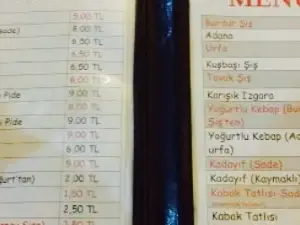 5,00 TL
sade)
6,00 TL
6,50 TL
6,50 TL
6,50 TL
8,00 TL
Pide
9,00 TL
8,00 TL
ı Pide
9,00 TL
9,00 TL
6,00 TL
5,00 TL
ğurt'tan)
2,00 TL
2,50 TL
MENÜ
Burdur Şiş
Adana
Urfa
Kuşbaşı Şiş
Tavuk Şiş
Karışık Izgara
Yoğurtlu Kebap (Bur
Şiş'ten)
Yoğurtlu Kebap (A
urfa)
Kadayıf (Sade)
Kadayıf (Kaymaklı)
Kabak Tatlısı-Sade
Kabak Tatlısı